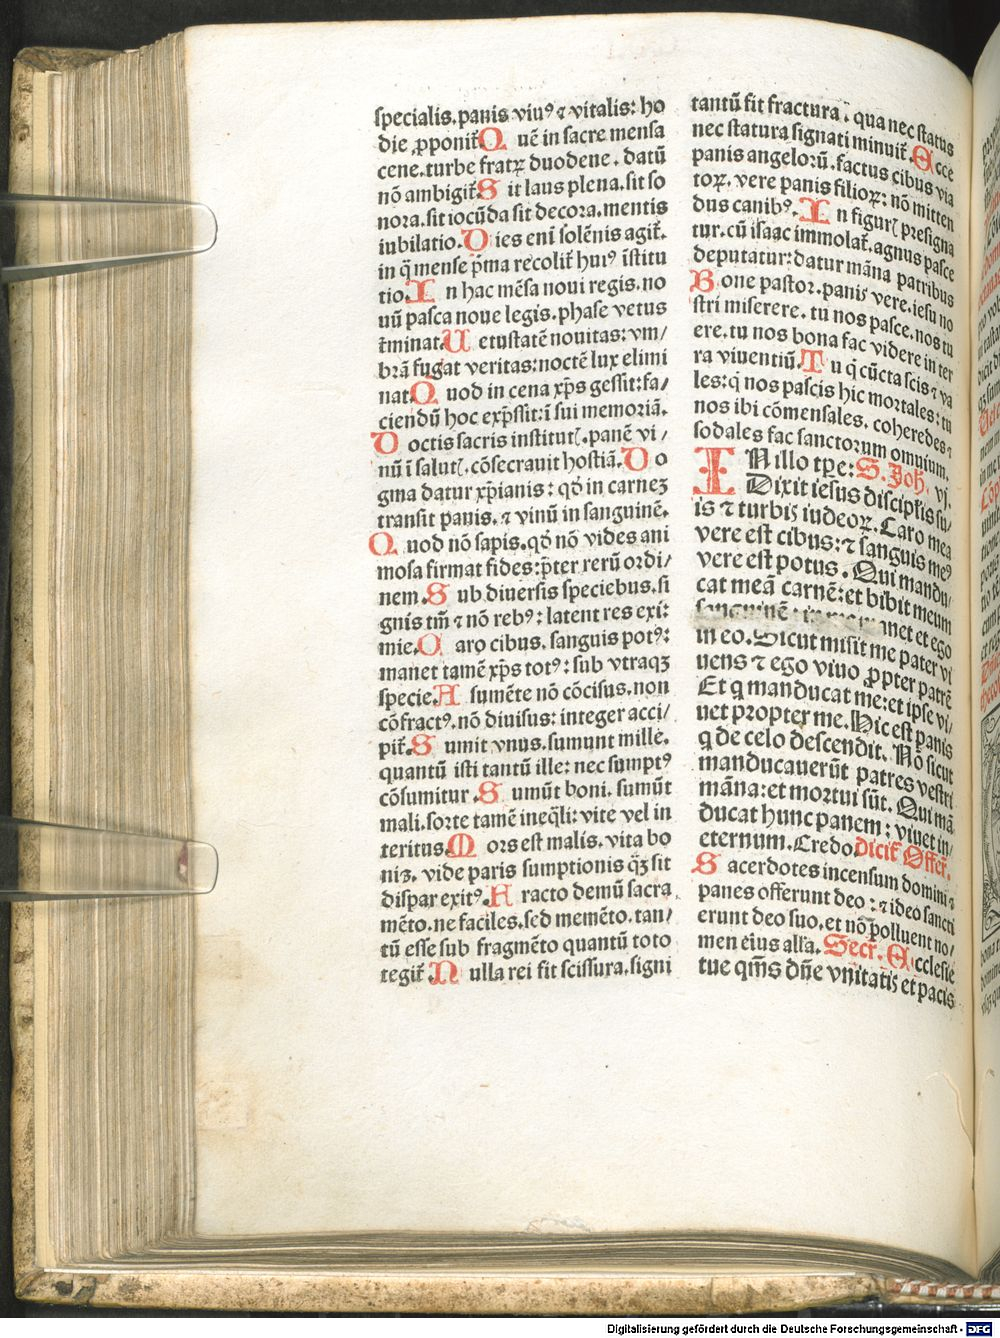 specialis.panis viuꝰ ⁊ vitalis: ho
die ꝓponit᷑ Q uē in sacre mensa
cene.turbe fratꝝ duodene. datū
nō ambigit᷑ S it laus plena.sit so
nora.sit iocūda sit decora.mentis
iubilatio. D ies enī solēnis agit᷑.
in q̄ mense p̄ma recolit᷑ huiꝰ īstitu
tio. I n hac mēsa noui regis.no
uū pasca noue legis.phase vetus
t̄minat. U etustatē nouitas: vm/
brā fugat veritas: noctē lux elimi
nat. Q uod in cena xp̄s gessit: fa/
ciendū hoc exp̄ssit: ī sui memoriā.
D octis sacris institutꝭ.panē vi/
nū ī salutꝭ.cōsecrauit hostiā. D o
gma datur xp̄ianis: qd̄ in carneꝫ
transit panis.⁊ vinū in sanguinē.
Q uod nō sapis.qd̄ nō vides ani
mosa firmat fides: p̄ter rerū ordi/
nem. S ub diuersis speciebus.si
gnis tm̄ ⁊ nō rebꝰ: latent res exi:
mie. C aro cibus.sanguis potꝰ:
manet tamē xp̄s totꝰ: sub vtraqꝫ
specie. A sumēte nō cōcisus.non
cōfractꝰ.nō diuisus: integer acci/
pit᷑. S umit vnus.sumunt mille.
quantū isti tantū ille: nec sumptꝰ
cōsumitur. S umūt boni.sumūt
mali.sorte tamē ineq̄li: vite vel in
teritus. M ors est malis.vita bo
nis.vide paris sumptionis q̄ꝫ sit
dispar exitꝰ. F racto demū sacra
mēto.ne facilles.sed memēto.tan/
tū esse sub fragmēto quantū toto
tegit᷑. N ulla rei fit scissura.signi
tantū fit fractura. qua nec status
nec statura signati minuit᷑. E cce
panis angelorū.factus cibus via
toꝝ.vere panis filioꝝ: nō mitten
dus canibꝰ. I n figurꝭ presigna
tur.cū isaac immolat᷑.agnus pasce
deputatur: datur māna patribus
B one pastor.panis vere.iesu no
stri miserere. tu nos pasce.nos tu
ere.tu nos bona fac videre in ter
ra viuentiū. T u q̄ cūcta scis ⁊ va
les: q̄ nos pascis hic mortales: tu
nos ibi cōmensales. coheredes ⁊
sodales fac sanctorum omnium.
IN illo tp̄e: S. Joh. vj.
Dixit iesus discipl̄is su/
is ⁊ turbis iudeoꝝ. Caro mea
vere est cibus: ⁊ sanguis meꝰ
vere est potus. Qui mandu/
cat meā carnē: et bibit meum
sanguinē: in me manet et ego
in eo. Sicut misit me pater vi
uens ⁊ ego viuo ꝓpter patrē
Et q manducat me: et ipse vi/
uet propter me. Hic est panis
q de celo descendit. Nō sicut
manducauerūt patres vestri
māna: et mortui sūt. Qui mā
ducat hunc panem: viuet in/
eternum. Credo. dicit᷑ Offer̄.
S acerdotes incensum domini ⁊
panes offerunt deo: ⁊ ideo sancti
erunt deo suo.et nō polluent no/
men eius all'a. Secr̄. E cclesie
tue qm̄s dn̄e vnitatis et pacis
Digitalisierung gefördert durch die Deutsche Forschungsgemeinschaft - DFG